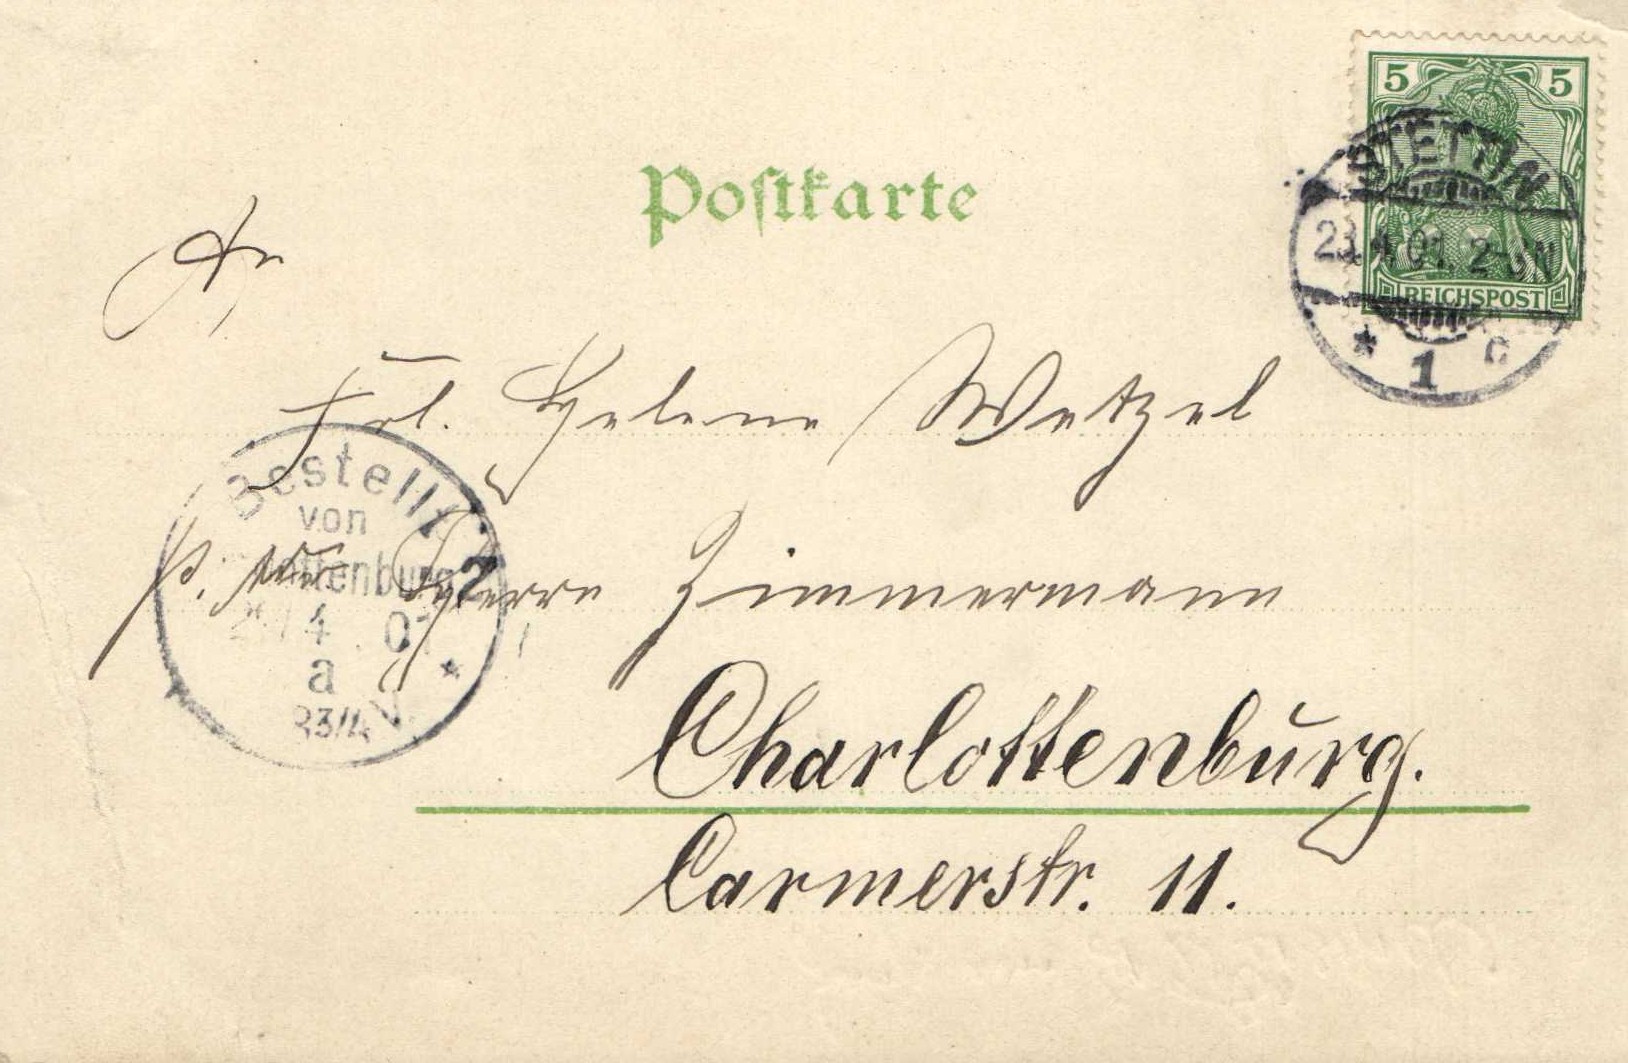 Postkarte
5 5
REICHSPOST
STETTIN
23.4.01. 2-3N
* 1 c
An
Frl. Helene Wetzel
p. Herrn Zimmermann
Charlottenburg.
Carmerstr. 11.
Bestellt
von
Charlottenburg 2
4 01
a *
83/4 V.